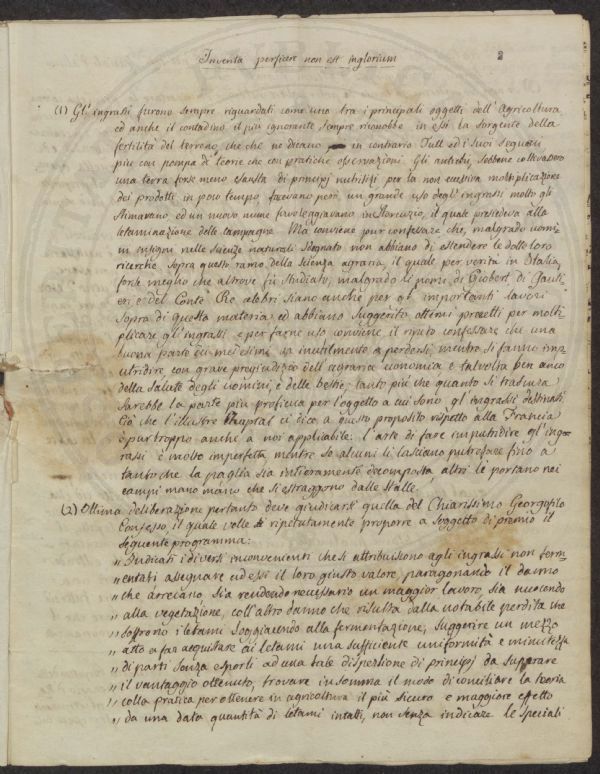 Inventa perficere non est inglorium
2
(1) Gl' ingrassi furono sempre riguardati come uno tra i principali oggetti dell' Agricoltura
ed anche il contadino il più ignorante sempre riconobbe in essi la sorgente della
fertilità del terreno, che che ne dicano in contrario Tull ed i suoi seguaci
più con pompa di teorie che con pratiche osservazioni. Gli antichi, sebbene coltivassero
una terra forse meno esausta di principj nutritizj, per la non eccessiva moltiplicazione
dei prodotti in poco tempo, facevano però un grande uso degl' ingrassi molto gli
stimavano ed un nuovo nume favoleggiavano in Stercuzio, il quale presiedeva alla
letaminazione delle campagne. Ma conviene pur confessare che, malgrado uomi-
ni insigni nelle scienze naturali sdegnato non abbiano di estendere le dotte loro
ricerche sopra questo ramo della scienza agraria, il quale per verità in Italia,
forse meglio che altrove fù studiato, malgrado i nomi di Giobert di Gauti-
eri e del Conte Re celebri siano anche per gl' importanti lavori
sopra di questa materia ed abbiano suggerito ottimi precetti per molti-
plicare gl' ingrassi e per farne uso conviene, il ripeto confessare che una
buona parte dei medesimi va inutilmente a perdersi, mentre si fanno im-
putridire, con grave pregiudizio dell' agraria economia e talvolta ben anco
della salute degli uomini, e delle bestie, tanto più che quanto si trascura
sarebbe la parte più proficua per l'oggetto a cui sono gl' ingrassi destinati.
Ciò che l'illustre Chaptal ci dice a questo proposito rispetto alla Francia
è purtroppo anche a noi applicabile: l'arte di fare imputridire gl' ing-
rassi è molto imperfetta mentre se alcuni li lasciano putrefare fino a
tanto che la paglia sia intieramente decomposta, altri le portano nei
campi mano mano che si estraggono dalle stalle.
(2) Ottima deliberazione pertanto deve giudicarsi quella del Chiarissimo Georgofilo
Consesso, il quale volle ripetutamente proporre a soggetto di premio il
seguente programma:
„ Indicati i diversi inconvenienti che si attribuiscono agli ingrassi non ferm-
„ entati assegnare ad essi il loro giusto valore, paragonando il danno
„ che arrecano, sia rendendo necessario un maggior lavoro, sia nuocendo
„ alla vegetazione, coll' altro danno che risulta dalla notabile perdita che
„ soffrono i letami soggiacendo alla fermentazione, suggerire un mezzo
„ atto a far acquistare ai letami una sufficiente uniformità e minutezza
„ di parti senza esporli ad una tale dispersione di principj da superare
„ il vantaggio ottenuto, trovare in somma il modo di conciliare la teoria
„ colla pratica per ottenere in agricoltura il più sicuro e maggiore effetto
„ da una data quantità di letami intatti, non senza indicare le speciali